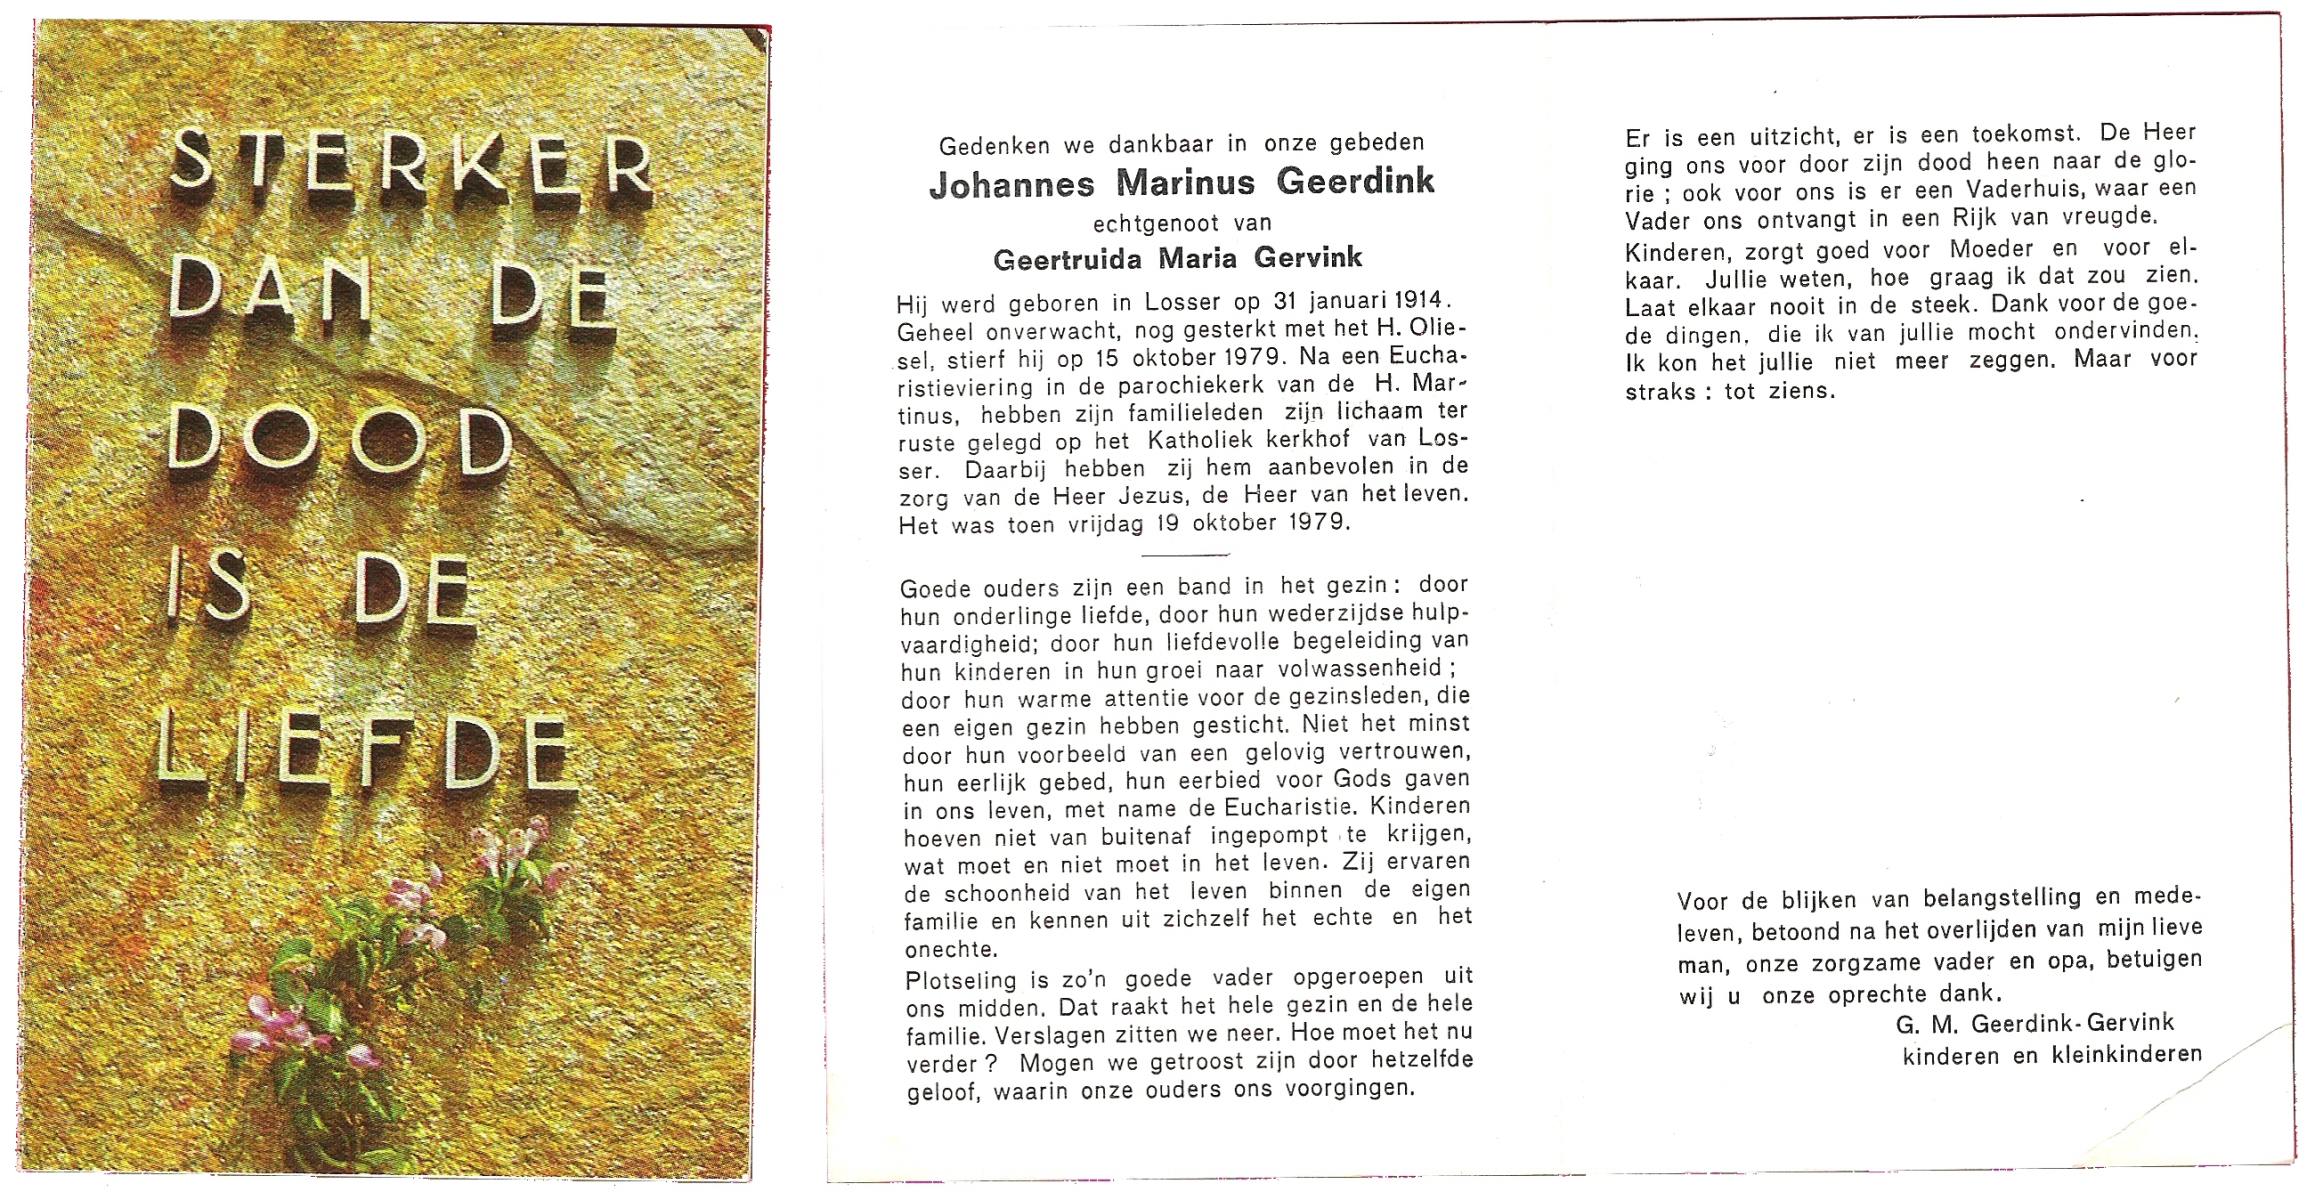 STERKER
DAN DE
DOOD
IS DE
LIEFDE
Gedenken we dankbaar in onze gebeden
Johannes Marinus Geerdink
echtgenoot van
Geertruida Maria Gervink
Hij werd geboren in Losser op 31 januari 1914.
Geheel onverwacht, nog gesterkt met het H. Olie-
sel, stierf hij op 15 oktober 1979. Na een Eucha-
ristieviering in de parochiekerk van de H. Mar-
tinus, hebben zijn familieleden zijn lichaam ter
ruste gelegd op het Katholiek kerkhof van Los-
ser. Daarbij hebben zij hem aanbevolen in de
zorg van de Heer Jezus, de Heer van het leven.
Het was toen vrijdag 19 oktober 1979.
Goede ouders zijn een band in het gezin : door
hun onderlinge liefde, door hun wederzijdse hulp-
vaardigheid; door hun liefdevolle begeleiding van
hun kinderen in hun groei naar volwassenheid ;
door hun warme attentie voor de gezinsleden, die
een eigen gezin hebben gesticht. Niet het minst
door hun voorbeeld van een gelovig vertrouwen,
hun eerlijk gebed, hun eerbied voor Gods gaven
in ons leven, met name de Eucharistie. Kinderen
hoeven niet van buitenaf ingepompt te krijgen,
wat moet en niet moet in het leven. Zij ervaren
de schoonheid van het leven binnen de eigen
familie en kennen uit zichzelf het echte en het
onechte.
Plotseling is zo'n goede vader opgeroepen uit
ons midden. Dat raakt het hele gezin en de hele
familie. Verslagen zitten we neer. Hoe moet het nu
verder ? Mogen we getroost zijn door hetzelfde
geloof, waarin onze ouders ons voorgingen.
Er is een uitzicht, er is een toekomst. De Heer
ging ons voor door zijn dood heen naar de glo-
rie ; ook voor ons is er een Vaderhuis, waar een
Vader ons ontvangt in een Rijk van vreugde.
Kinderen, zorgt goed voor Moeder en voor el-
kaar. Jullie weten, hoe graag ik dat zou zien.
Laat elkaar nooit in de steek. Dank voor de goe-
de dingen, die ik van jullie mocht ondervinden.
Ik kon het jullie niet meer zeggen. Maar voor
straks : tot ziens.
Voor de blijken van belangstelling en mede-
leven, betoond na het overlijden van mijn lieve
man, onze zorgzame vader en opa, betuigen
wij u onze oprechte dank.
G. M. Geerdink-Gervink
kinderen en kleinkinderen